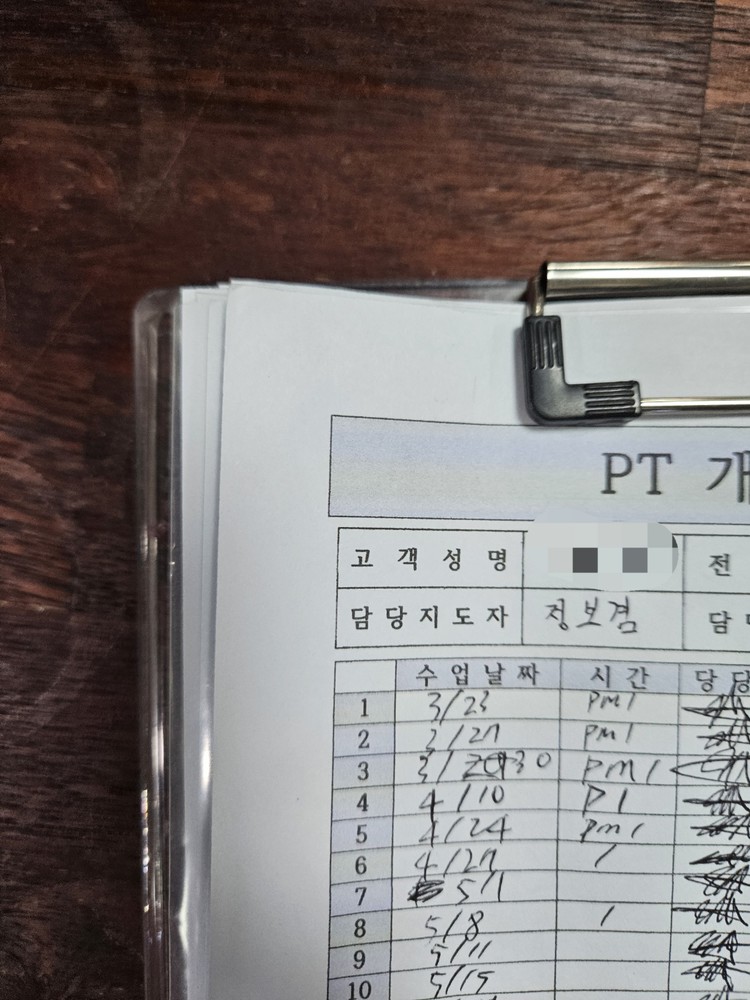 PT 개
고 객 성 명 전
담 당 지 도 자 정보겸 담
수 업 날 짜 시 간 당 당
1 3/23 PM1
2 3/27 PM1
3 3/30 PM1
4 4/10 P1
5 4/24 PM1
6 4/27 /
7 5/1
8 5/8 /
9 5/11
10 5/15